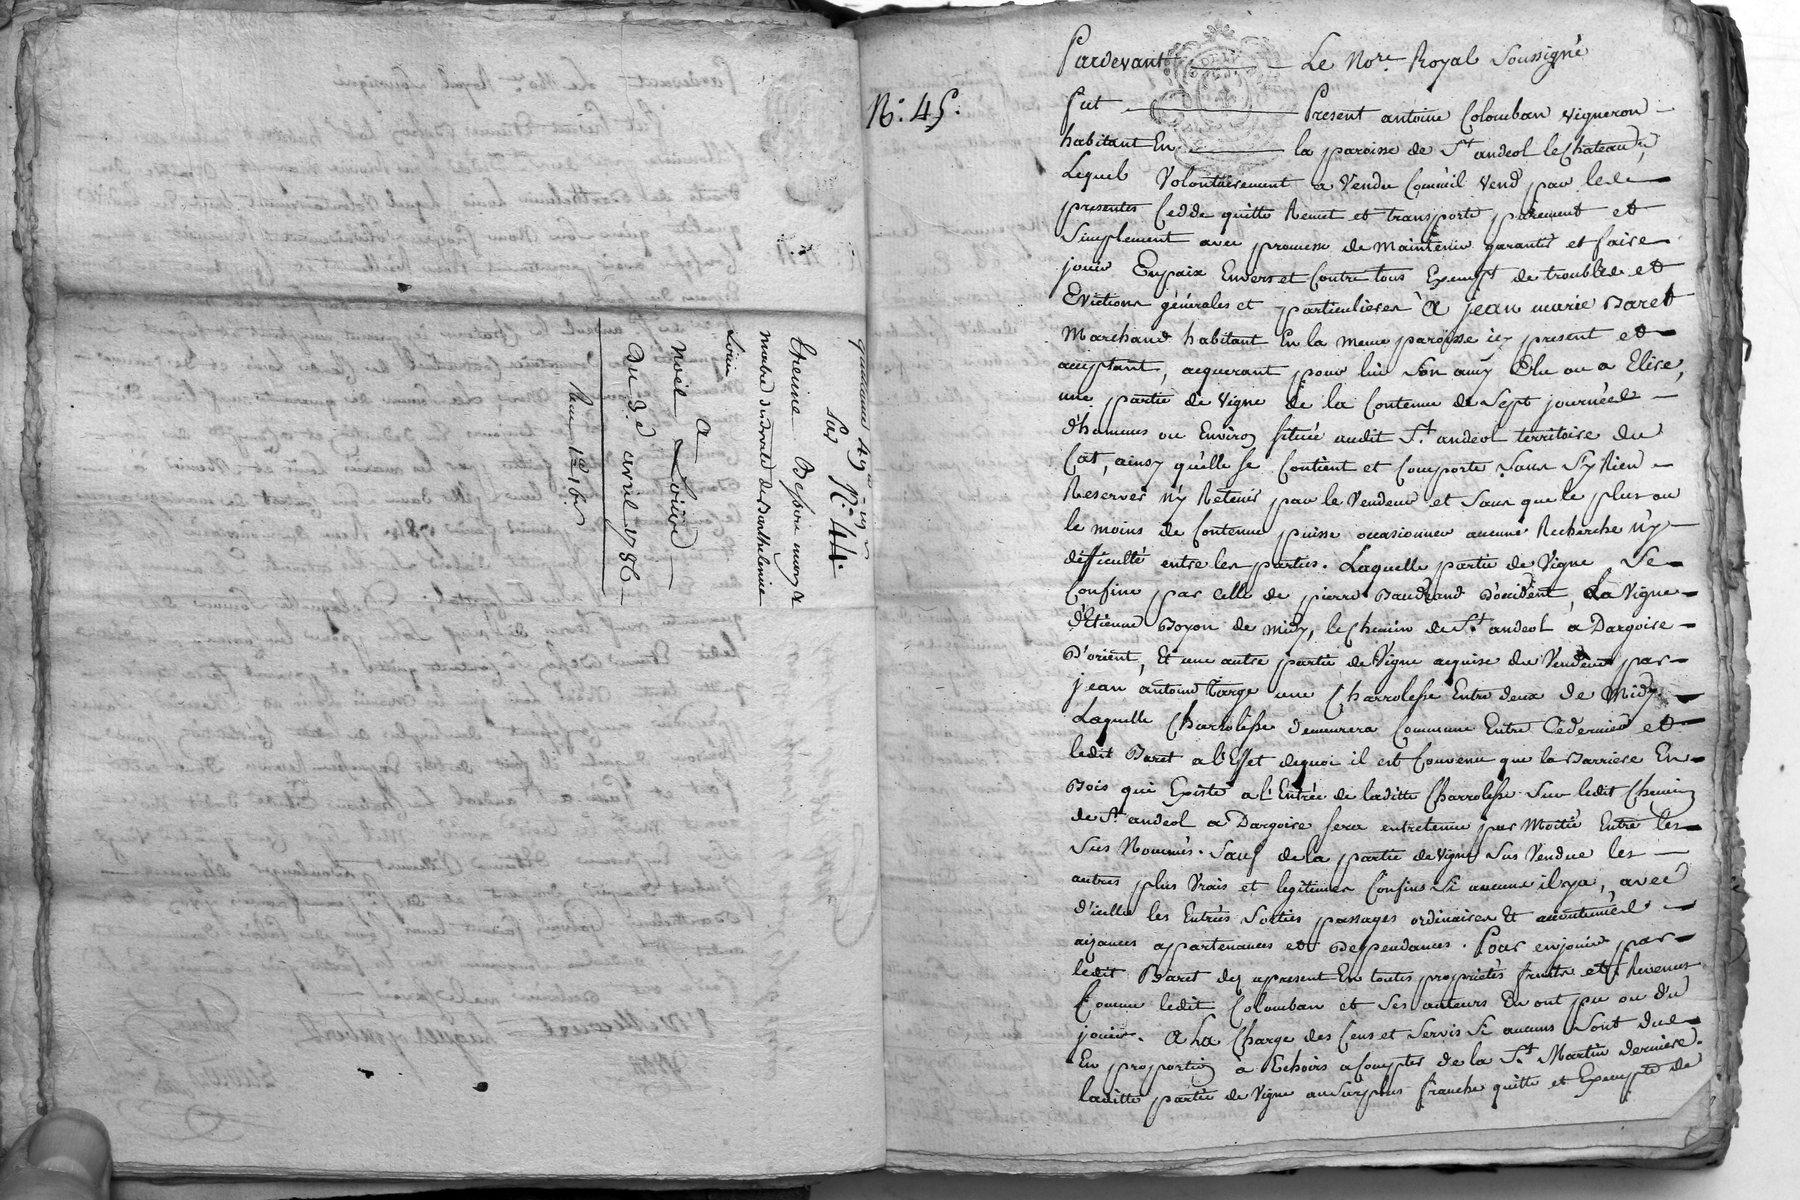 quittance 49
Sur N.° 44.
Eteinne mary &
maitre des droits de Barthelemie
Loire
A
Noël Loire
Du 3.e avril 1786
N.° 45.
Pardevant Le No.re Royal Soussigné
fut Present antoine Colomban vigneron
habitant En la paroisse de S.t andeol le Chateau,
Lequel Volontairement a Vendu Comm'il vend par les
presentes Cedde quitte Remet et transporte purement et
Simplement avec promesse de maintenir garantir et faire
jouir En paix Envers et Contre tous Exempt de troubles et
Evictions générales et particulieres à jean marie Baret
Marchand habitant En la meme paroisse icy present et
acceptant, acquerant pour lui Son amy Elu ou a Elire,
une partie de Vigne de la Contenue de Sept journées
d'hommes ou Environ située audit S.t andeol territoire du
Cat, ainsy qu'elle se Contient et Comporte Sans S'y Rien
Reserver n'y Retenir par le Vendeur et Sans que le plus ou
le moins de Contenue puisse occasionner aucune Recherche n'y
difficulté entre les parties. Laquelle partie de Vigne Se
Confine par celle de pierre Baudrand d'occident, La Vigne
d'Etienne Boyon de midy, le Chemin de S.t andeol a Dargoire
D'orient, Et une autre partie de Vigne acquise du Vendeur par
jean antoine Targe une Charrolesse Entre deux de Midy
Laquelle Charrolesse demeurera Commune Entre Ce dernier et
ledit Baret a l'Effet dequoi il est Convenu que la Barriere En
Bois qui Existe a l'Entrée de laditte Charrolesse Sur ledit Chemin
de S.t andeol a Dargoire sera entretenue par Moitié Entre les
Sus Nommés. Sauf de la partie de Vigne Sus Vendue les
autres plus Vrais et legitimes Confins Si aucuns il y a, avec
d'icelle les Entrées Sorties passages ordinaires Et accoutumés
aizances apartenances et Dependances. Pour en jouir par
ledit Baret dez apresent En toutes proprietés fruits et Revenus
Comme ledit Colomban et Ses auteurs En ont pu ou du
jouir. A La Charge des Cens et Servis Si aucuns Sont dus
En proportion à Echoirs a Compter de la S.t Martin derniere.
laditte partie de Vigne au Surplus franche quitte et Exempte de